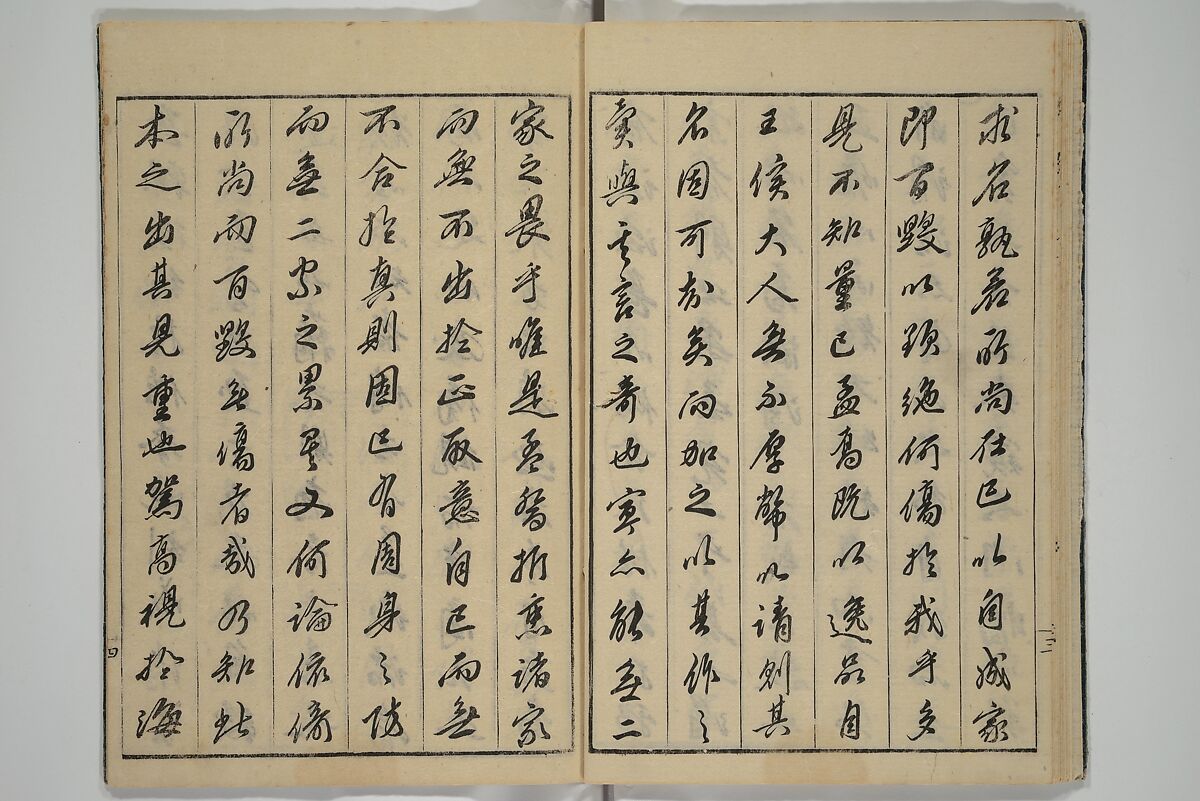 求名孰若所尚在己以自成家
即百毀以頸絶何傷於我乎多
見不知量已孟喬既以逸品自
王侯大人無不厚幣以請則其
名固可知矣而加之以其作之
賣與言之奇也寧亦能無二
家之畏乎唯是吾督折衷諸家
而無不出於正取意自己而無
不合於真則固已有周身之防
而無二家之累其又何論依倚
所尚而百毀無傷者哉乃知此
本之出其見重也駕高視於海
三
四